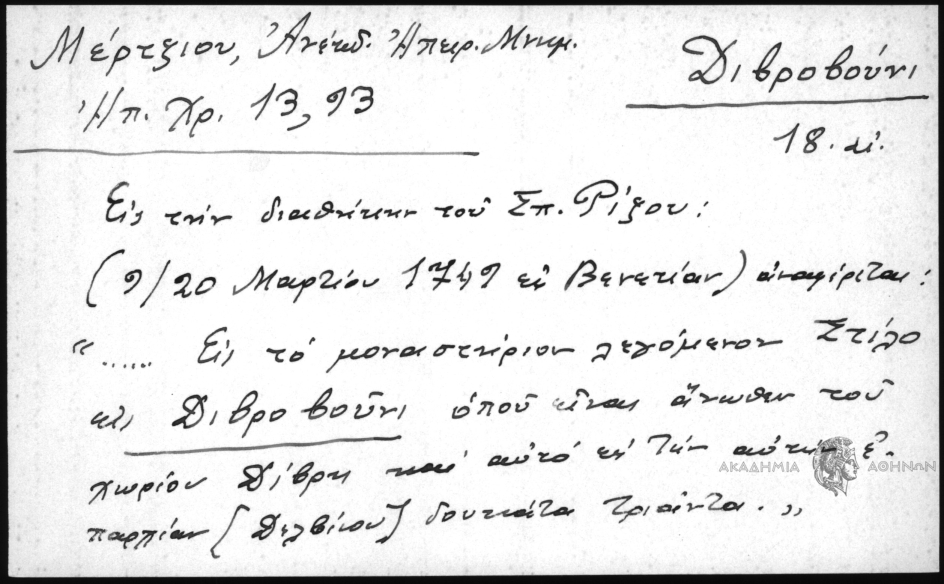 Μέρτζιου, Ἀνέκδ. Ἠπειρ. Μνημ.
Διβροβούνι
Ἠπ. Χρ. 13, 93
18. αἰ.
Εἰς τὴν διαθήκην τοῦ Σπ. Ρίζου:
(9/20 Μαρτίου 1749 ἐν Βενετίᾳ) ἀναφέρεται:
"...... Εἰς τὸ μοναστήριον λεγόμενον Στίλο
εἰς Διβροβοῦνι ὁποῦ εἶναι ἄνωθεν τοῦ
χωρίου Δίβρη καὶ αὐτὸ εἰς τὴν αὐτὴν ἐ-
παρχίαν [Δελβίνου] δουκάτα τριάντα."
ΑΚΑΔΗΜΙΑ ΑΘΗΝΩΝ